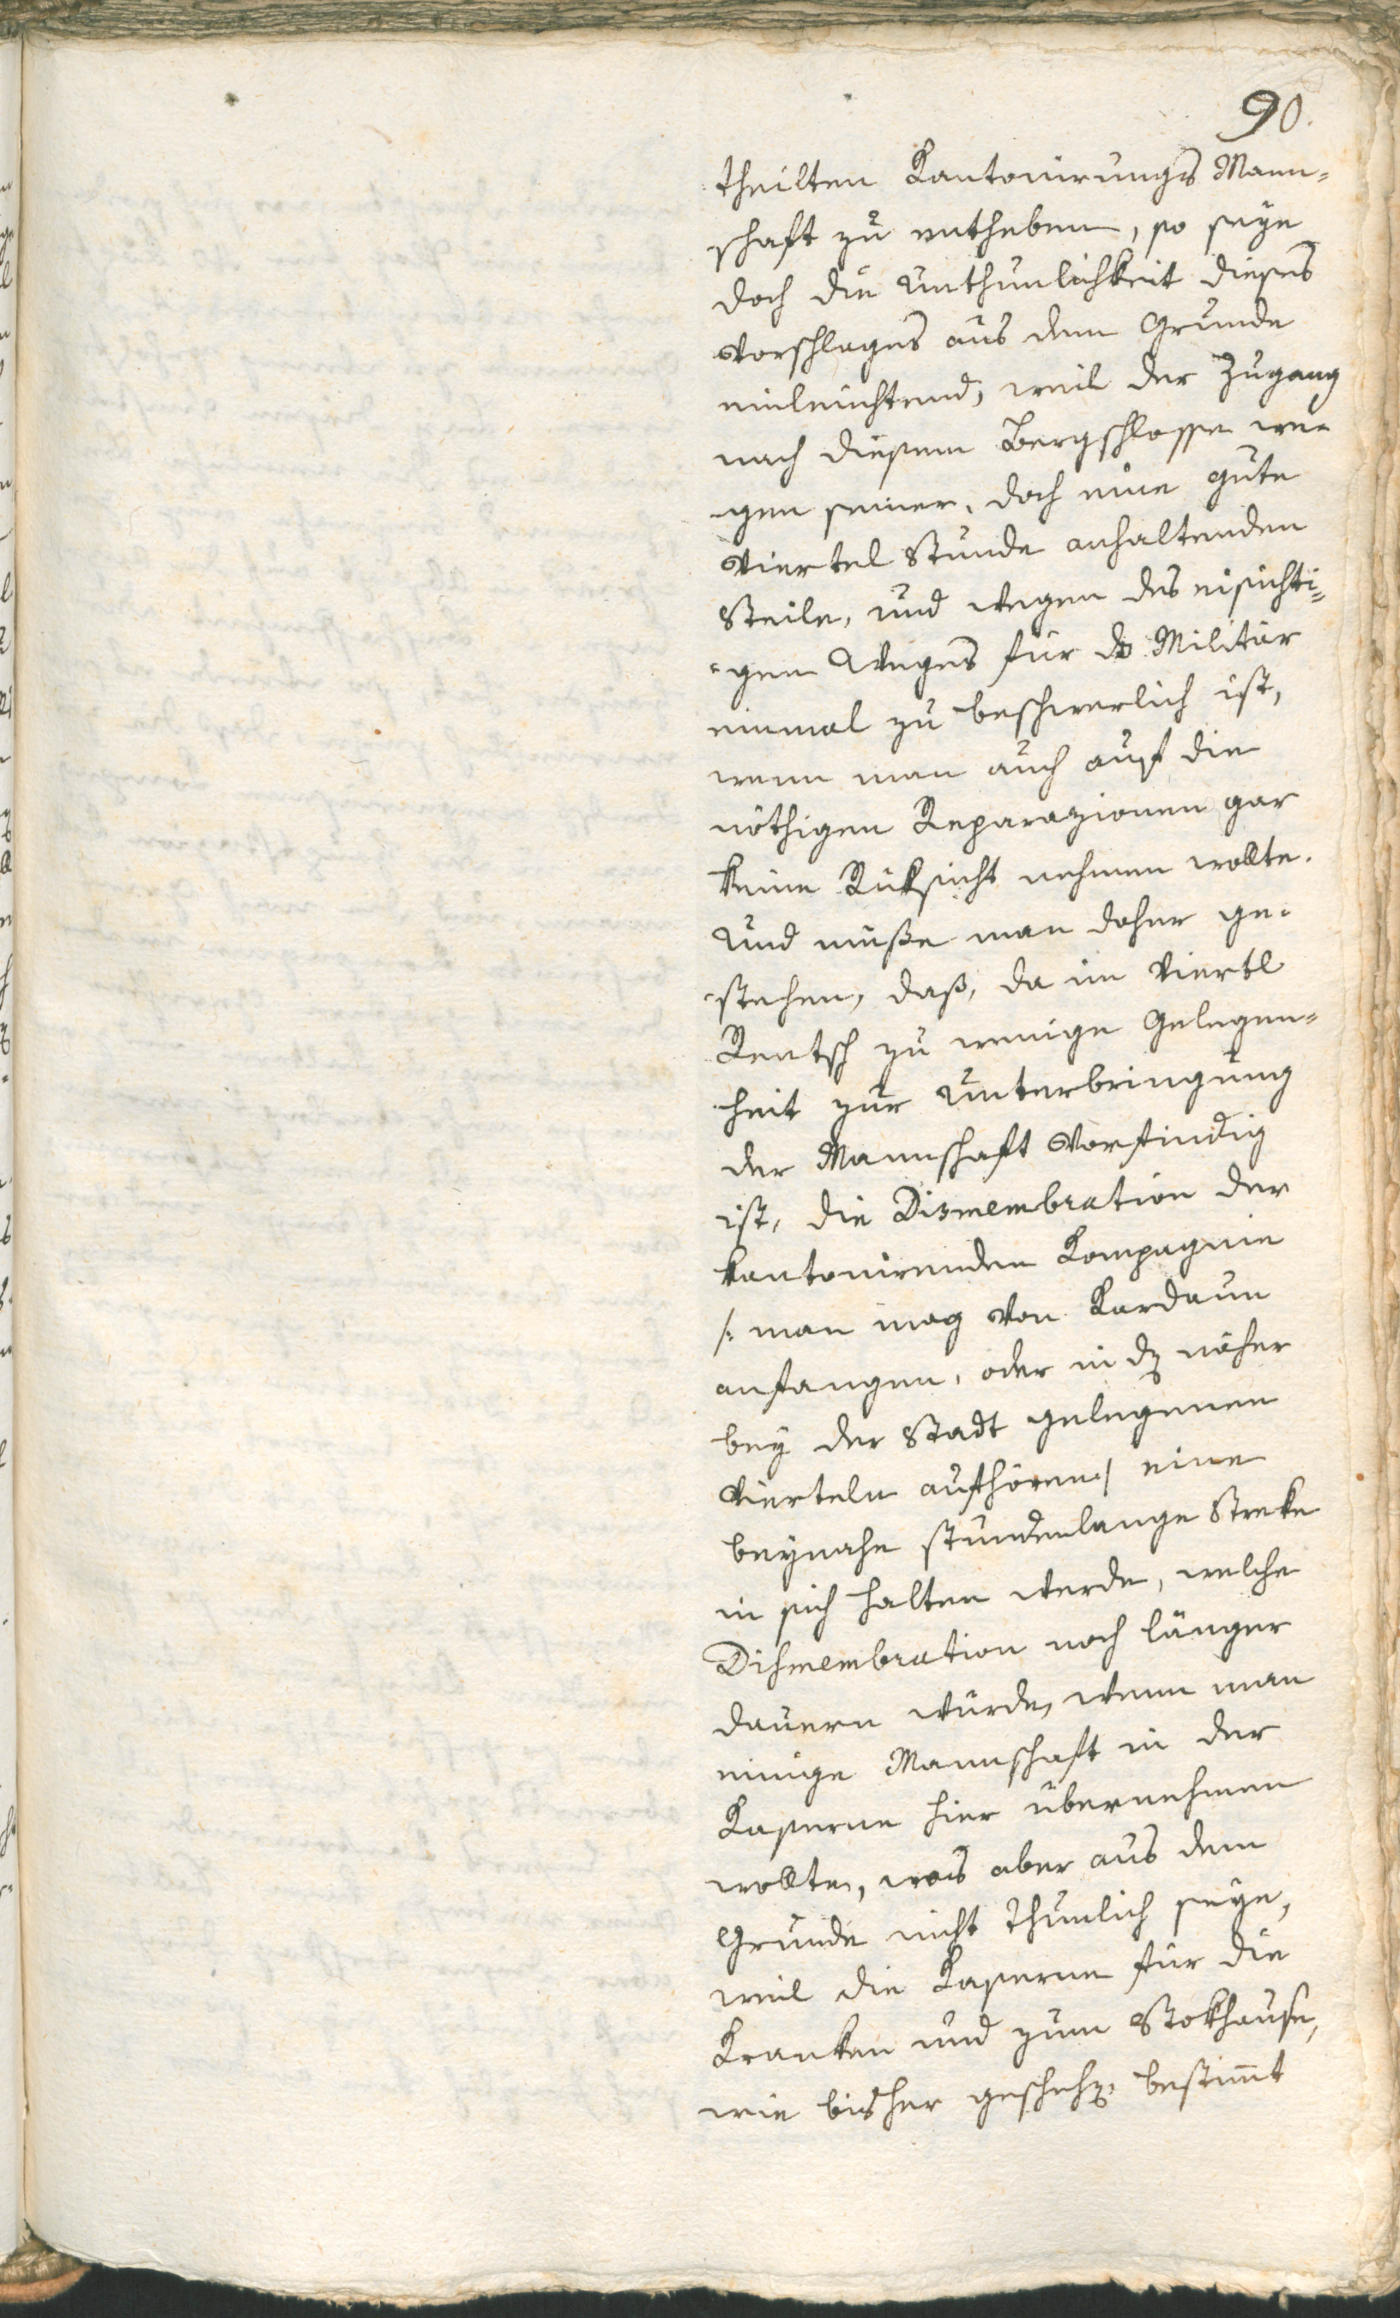 90.
theilten Kantonirungs Mann-
schaft zu entheben, so seye
doch die Unthunlichkeit dieses
Vorschlages aus dem Grunde
einleuchtend, weil der Zugang
nach diesem Bergschlosse we-
gen seiner, doch eine gute
Viertel Stunde anhaltenden
Steile, und wegen des eisichti=
-gen Weges für ds Militär
einmal zu beschwerlich ist,
wenn man auch auf die
nöthigen Reparazionen gar
keine Rüksicht nehmen wollte.
Und müße man daher ge-
-stehen, daß, da im Viertl
Rentsch zu wenige Gelegen-
heit zur Unterbringung
der Mannschaft Vorfindig
ist, die Dismembration der
kantonirenden Kompagnie
/: man mag von Kardaun
anfangen, oder in dz näher
bey der Stadt gelegenen
Vierteln aufhören:/ eine
beynahe stundenlange Streke
in sich halten werde, welche
Dismembration noch länger
dauern würde, wenn man
einige Mannschaft in der
Kaserne hier übernehmen
wollte, was aber aus dem
Grunde nicht thunlich seye,
weil die Kaserne für die
Kranken und zum Stokhause,
wie bisher geschehen bestimt